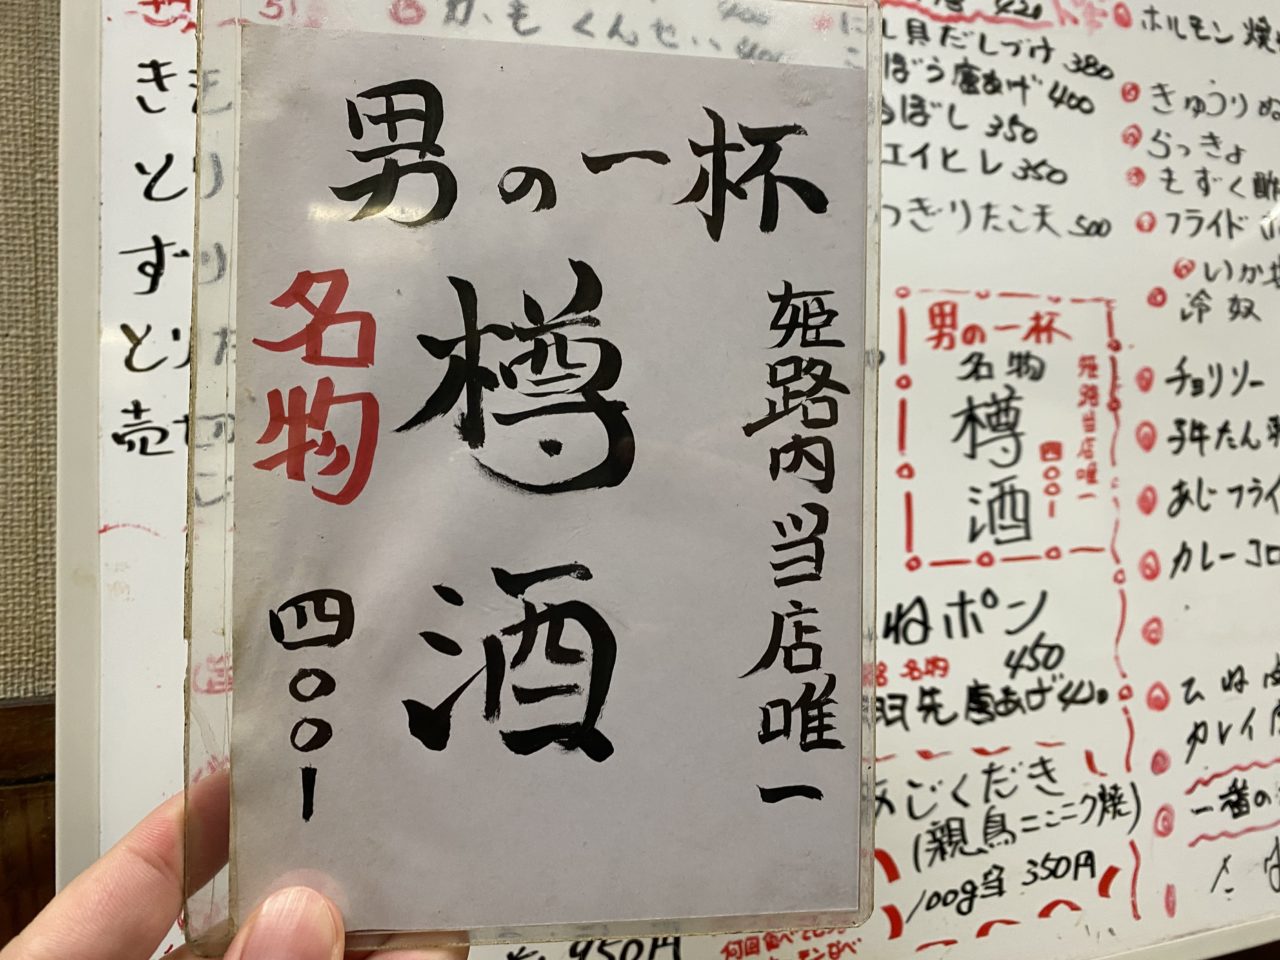 男の一杯
姫路内当店唯一
樽酒
名物
四〇〇ー
きも
とり
ずり
かもくんせい 400
貝だしづけ 380
ぼう唐あげ 400
ぼし 350
エイヒレ 350
つぎりたこ天 500
男の一杯
名物
樽酒
姫路当店唯一
四〇〇ー
ねポン
450
名物
羽先唐あげ 420
くだき
(親鳥ニンニク焼)
100g当 350円
950円
ホルモン焼
きゅうりぬ
らっきょ
もずく酢
フライド
いか
冷奴
チョリソー
牛たん
あじフライ
カレーコロ
ひね
カレイ
一番の